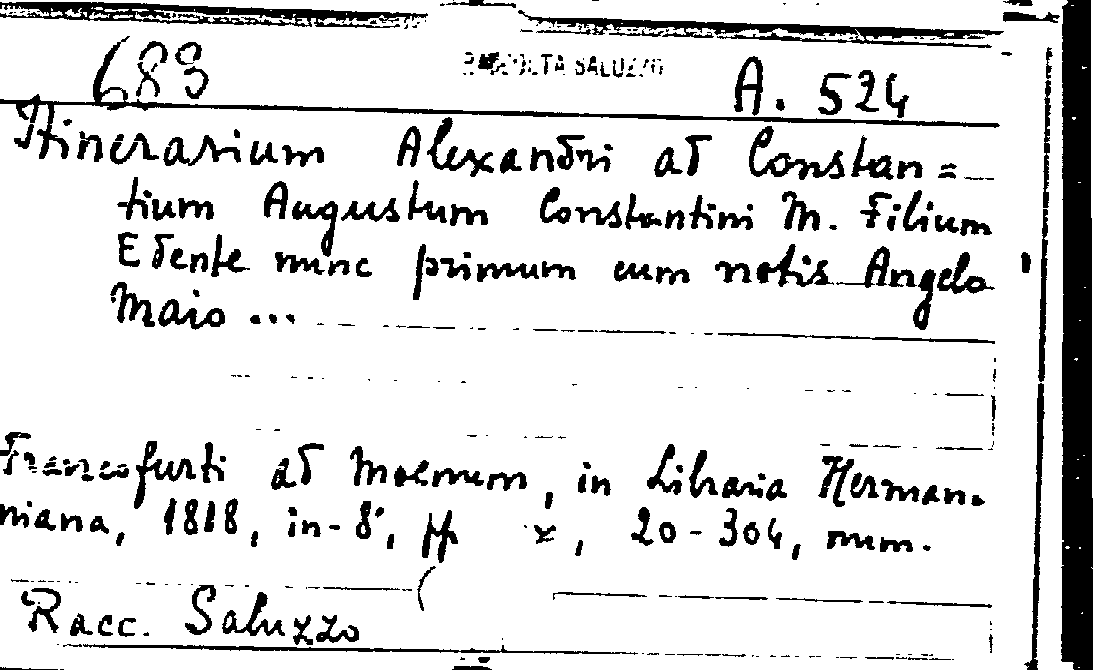 683 RACCOLTA SALUZZO A. 524
Itinerarium Alexandri ad Constan=
tium Augustum Constantini M. Filium
Edente nunc primum cum notis Angelo
Maio ...
Francofurti ad Moenum, in Libraria Herman=
niana, 1818, in-8°, pp x, 20-304, num.
Racc. Saluzzo